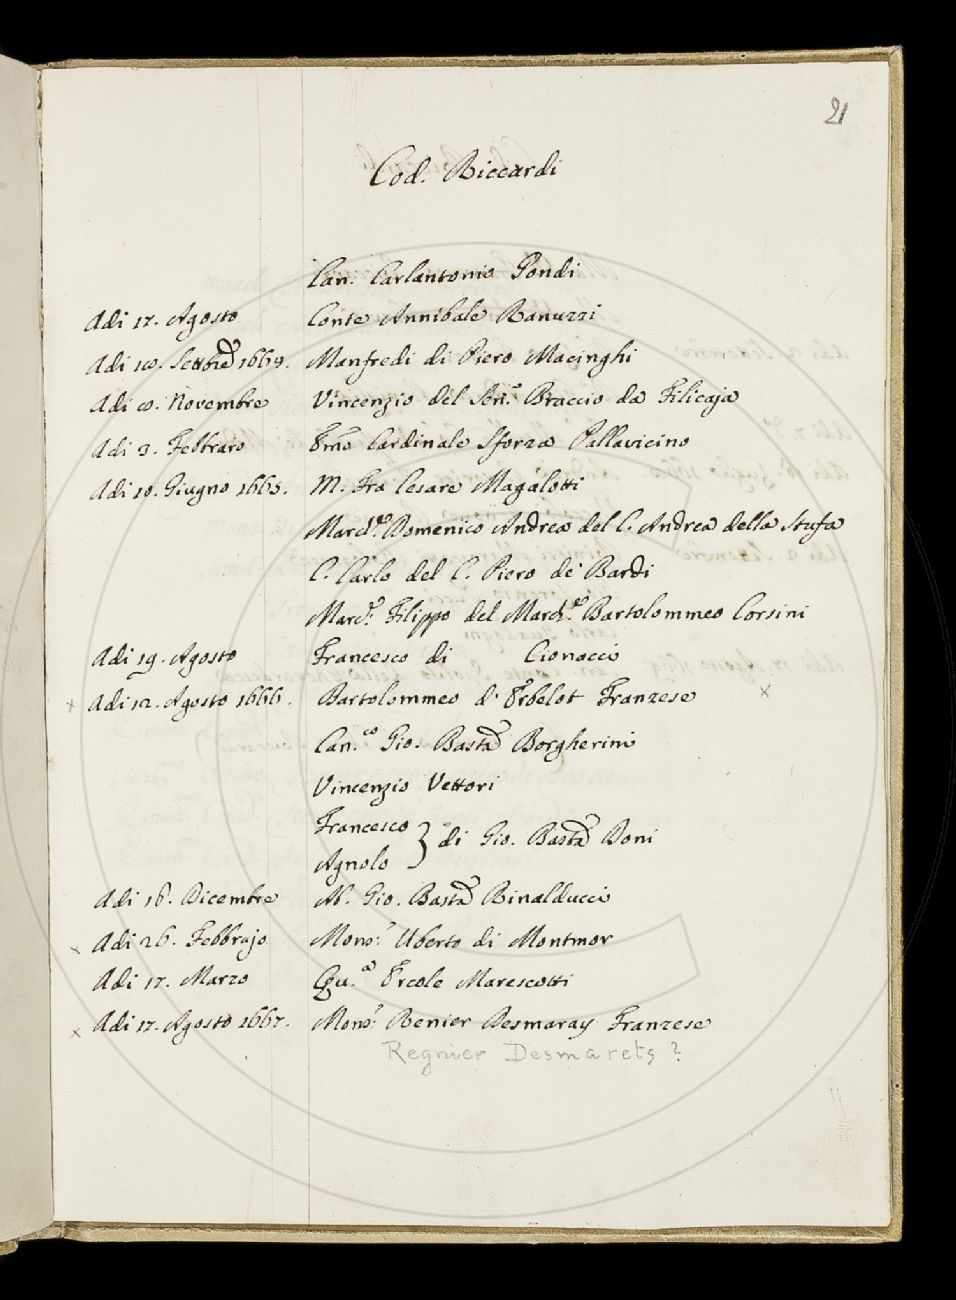 21
Cod. Riccardi
Can. Carlantonio Gondi
Adi 17. Agosto Conte Annibale Ranuzzi
Adi 10. Settbre 1664. Manfredi di Piero Macinghi
Adi 10. Novembre Vincenzio del Sen.re Braccio da Filicaja
Adi 3. Febbraro Emo Cardinale Sforza Pallavicino
Adi 10. Giugno 1665. M. Fra Cesare Magalotti
March.se Domenico Andrea del C. Andrea della Stufa
C. Carlo del C. Piero de' Bardi
Marc.e Filippo del March.se Bartolommeo Corsini
Adi 19. Agosto Francesco di Cionacci
x Adi 12. Agosto 1666. Bartolommeo d'Erbelot Franzese x
Can.co Gio. Basta Borgherini
Vincenzio Vettori
Francesco
} di Gio. Basta Doni
Agnolo
Adi 16. Dicembre Ab. Gio. Basta Rinalducci
x Adi 26. Febbrajo Mons.r Uberto di Montmor
Adi 17. Marzo Ercole Marescotti
x Adi 17. Agosto 1667. Mons.r Renier Desmaray Franzese
Regnier Desmarets ?